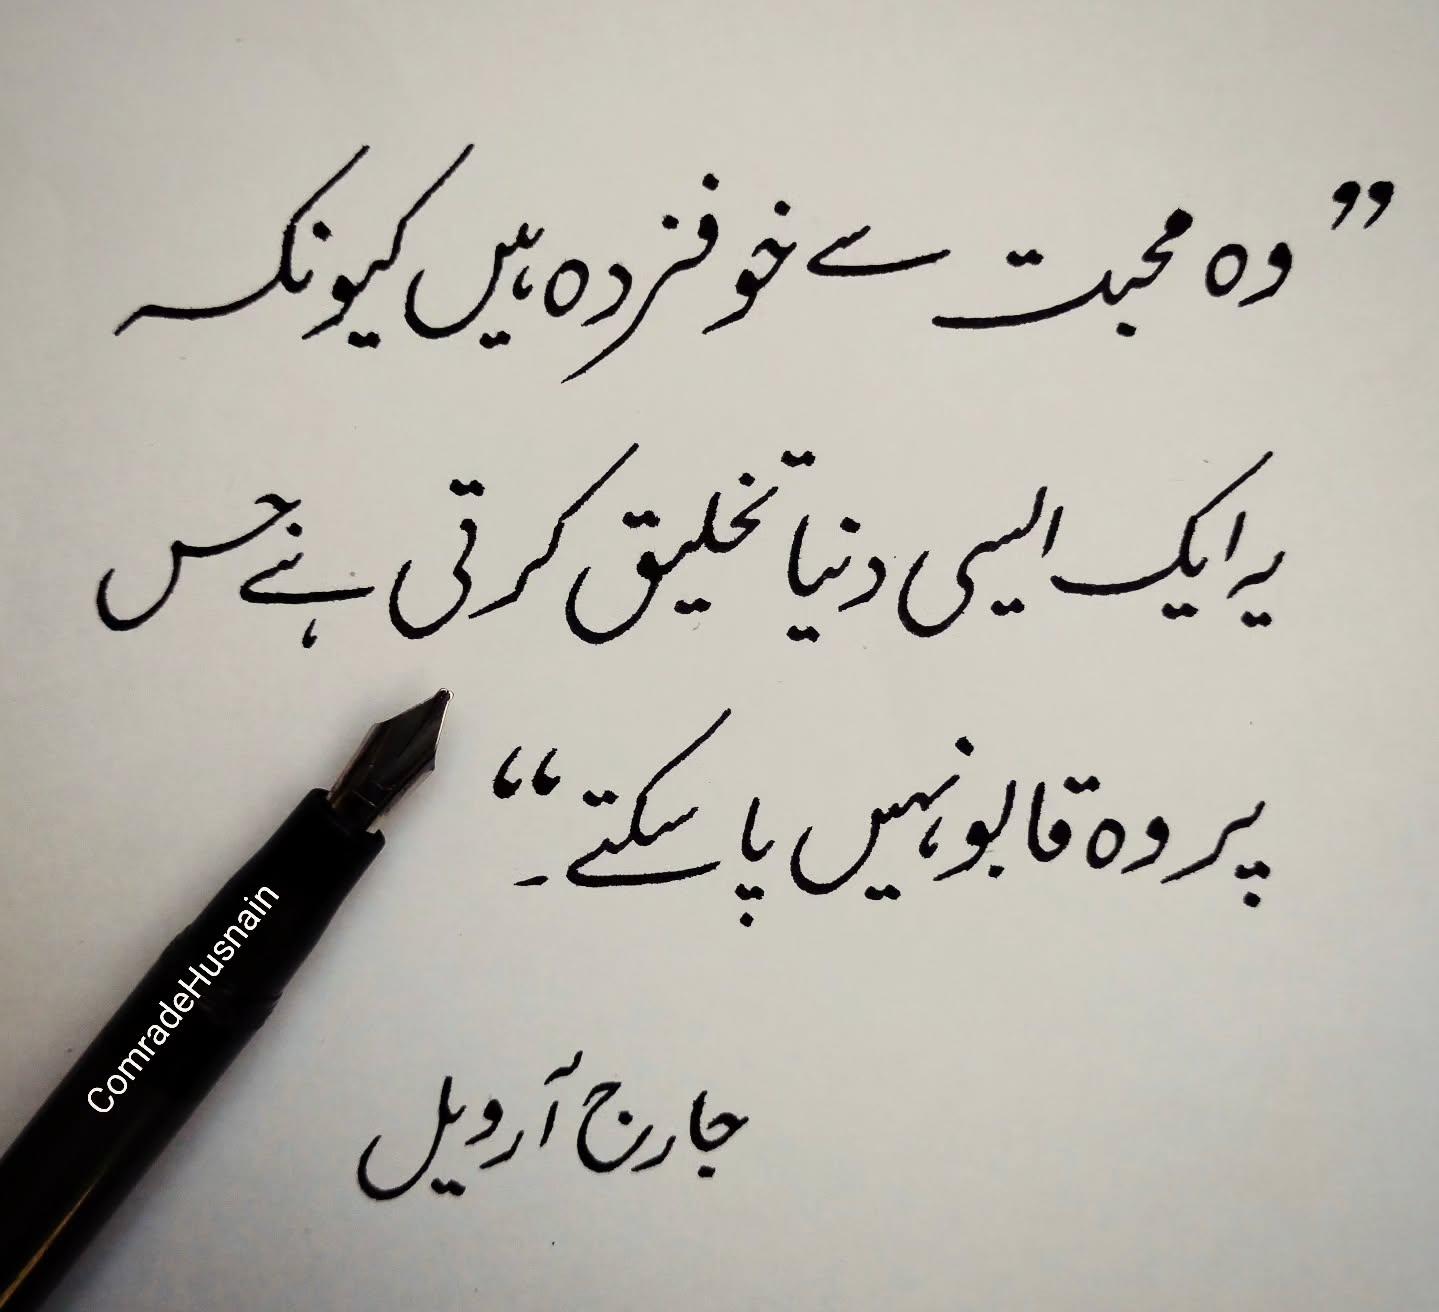 ”وہ محبت سے خوفزدہ ہیں کیونکہ
یہ ایک ایسی دنیا تخلیق کرتی ہے جس
پر وہ قابو نہیں پا سکتے۔“
جارج آرویل
ComradeHusnain